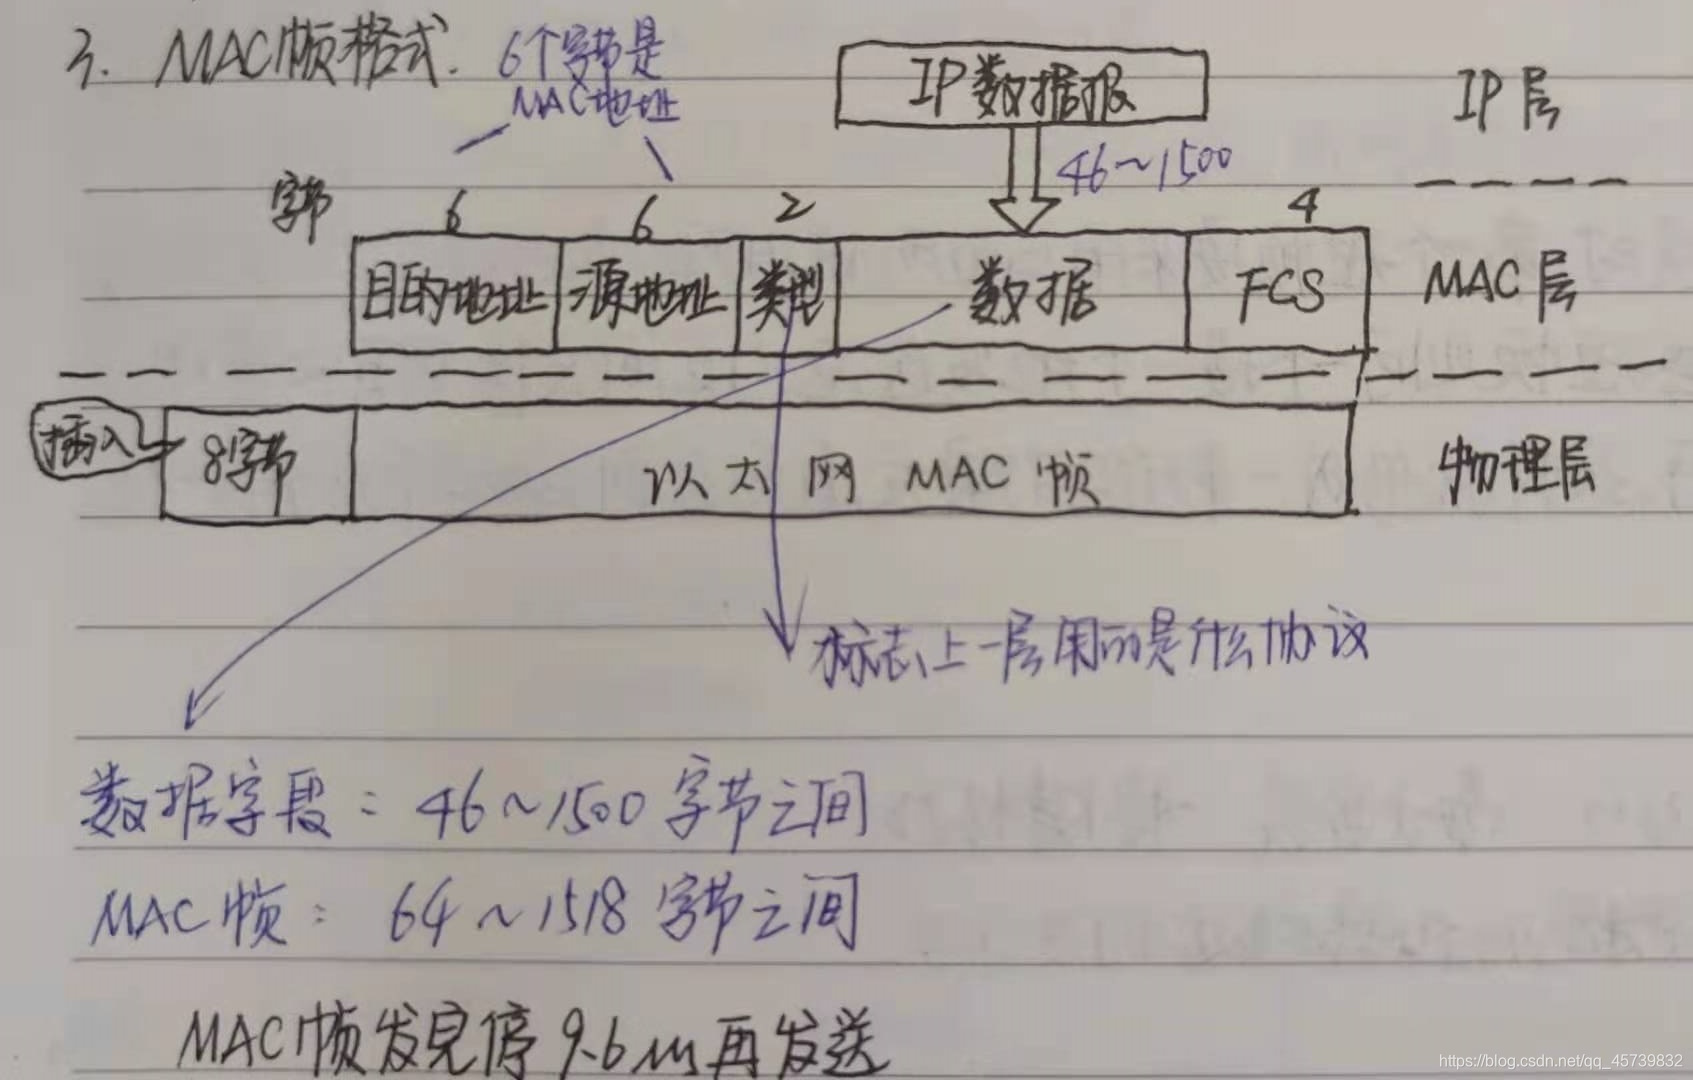 3. MAC帧格式.
6个字节是
MAC地址
IP数据报
IP层
46~1500
字节
6
6
2
4
目的地址
源地址
类型
数据
FCS
MAC层
插入
8字节
以太网 MAC 帧
物理层
标志上一层用的是什么协议
数据字段: 46~1500 字节之间
MAC帧: 64~1518 字节之间
MAC帧发完停 9.6 再发送
https://blog.csdn.net/qq_45739832